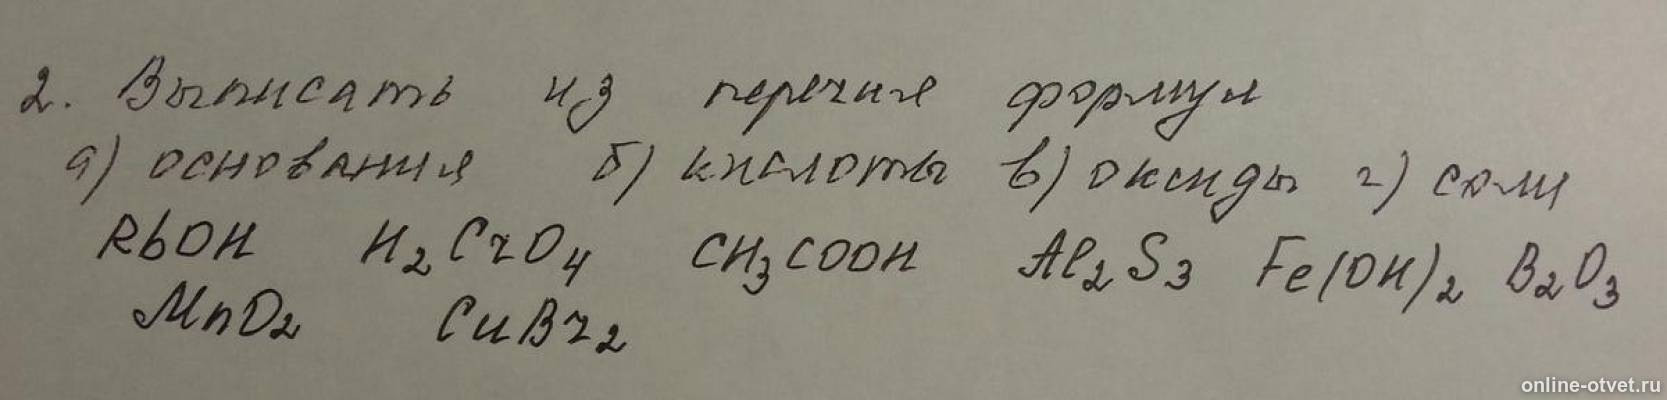 2. Выписать из перечня формул
а) основания б) кислоты в) оксиды г) соли
RbOH H₂CrO₄ CH₃COOH Al₂S₃ Fe(OH)₂ B₂O₃
MnO₂ CuBr₂
online-otvet.ru